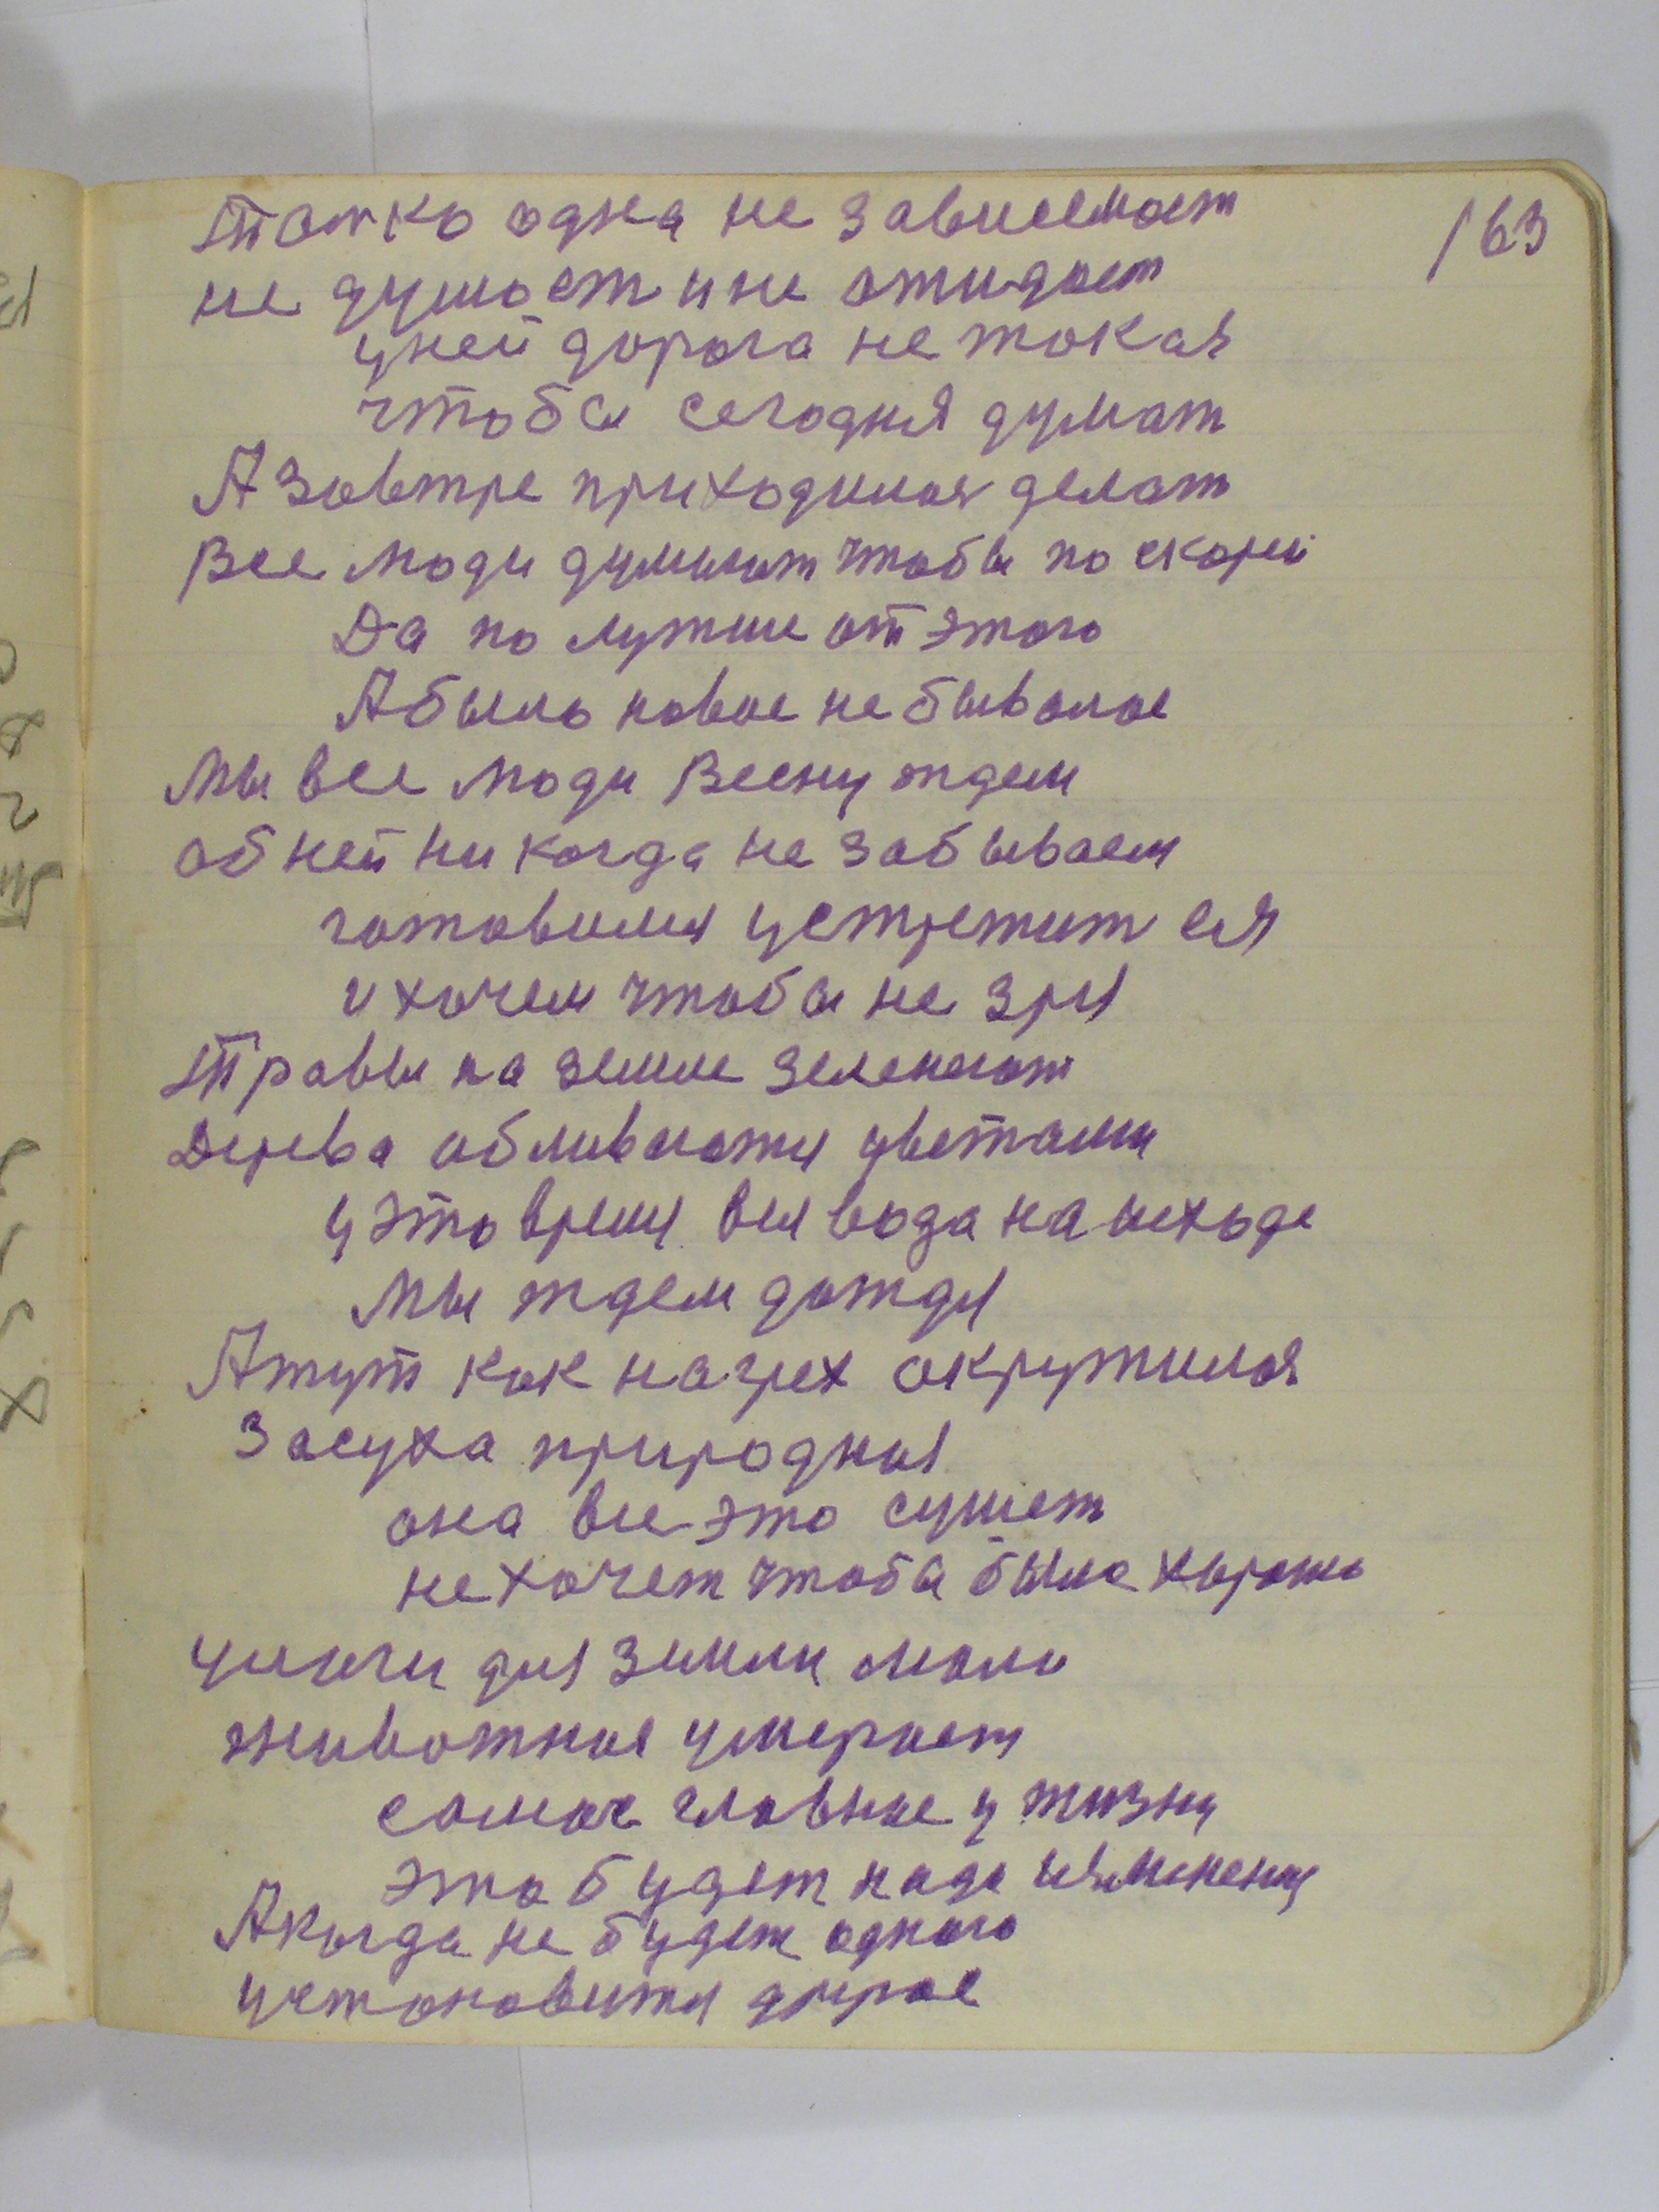 163
Толко одна не зависемост
не думает и не ожидает
уней дорога не токая
чтобы сегодня думат
А Завтре приходился делат
Все люди думают чтобы по скорей
Да по лутше от этого
А было новое не бывалое
Мы все люди Весну ждем
об ней ни когда не забываем
готовимся устретит ея
и хочем чтобы не зря
Травы на земле зеленеют
Дерева обливаются цветами
у это время вся вода на исходе
Мы ждем дождя
А тут как на грех окружился
Засуха природная
она все это сушет
не хочет чтобы было хорошо
для земли мало
животная умерает
самое главное у жизни
это будет надо
А когда не будет одного
устоновится другое